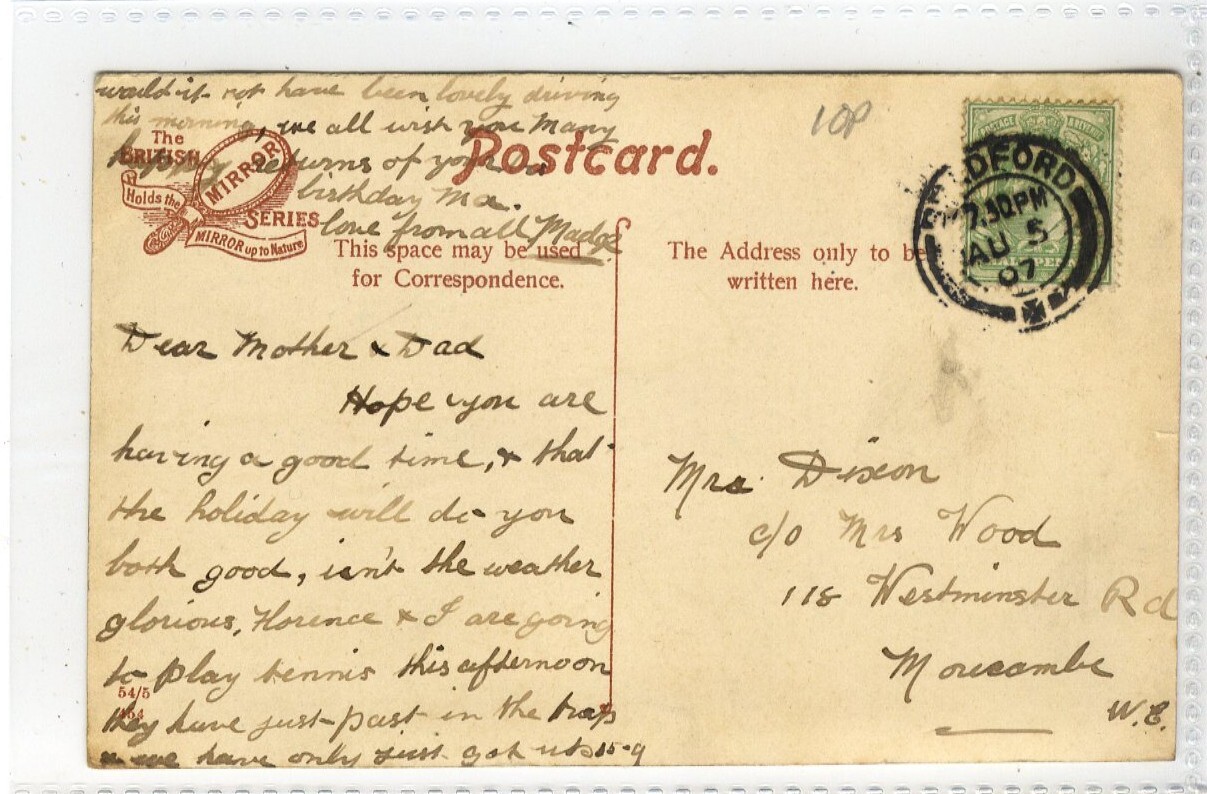 would it not have been lovely driving
this morning, we all wish you Many
happy returns of your
birthday Ma.
love from all Madge
The
BRITISH
MIRROR
Holds the
SERIES
MIRROR up to Nature
Postcard.
This space may be used
for Correspondence.
The Address only to be
written here.
10P
POSTAGE & REVENUE
BRADFORD
7.30PM
AU 5
07
Dear Mother & Dad
Hope you are
having a good time, & that
the holiday will do you
both good, isn't the weather
glorious, Florence & I are going
to play tennis this afternoon
54/5
they have just past in the traps
& we have only just got up 15-9
Mrs Dixon
c/o Mrs Wood
118 Westminster Rd
Morecambe
W.E.